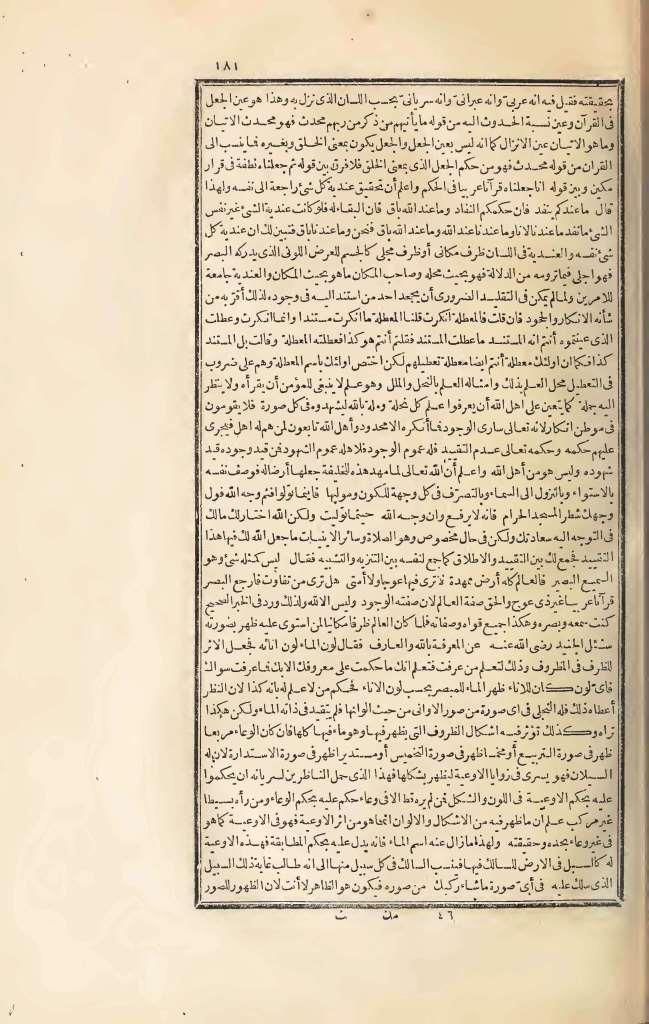 ١٨١
بحقيقته فقيل فيه انه عربى وانه عبرانى وانه سريانى بحسب اللسان الذى نزل به وهذا هو عين الجعل
فى القرآن وعين نسبة الحدوث اليه من قوله ما يأتيهم من ذكر من ربهم محدث فهو محدث الاتيان
وما هو الاتيان عين الانزال كما انه ليس بعين الجعل والجعل يكون بمعنى الخلق وبغيره فما ينسب الى
القرآن من قوله محدث فهو من حكم الجعل الذى بمعنى الخلق فلا فرق بين قوله ثم جعلناه نطفة فى قرار
مكين وبين قوله انا جعلناه قرآنا عربيا فى الحكم واعلم أن تحقيق عندية كل شئ راجعة الى نفسه ولهذا
قال ما عندكم ينفد فان حكمكم النفاد وما عند الله باق فان البقاء له فلو كانت عندية الشئ غير نفس
الشئ ما نفد ما عندنا لاننا وما عندنا عند الله وما عند الله باق فنحن وما عندنا باق فتبين لك ان عندية كل
شئ نفسه والعندية فى اللسان ظرف مكانى أو ظرف محلى كالجسم للعرض اللونى الذى يدركه البصر
فهو أجلى فيما ترومه من الدلالة فهو بحيث محله وصاحب المكان ما هو بحيث المكان والعندية جامعة
للامرين ولما لم يمكن فى التقليد الضرورى أن يجحد احد من استند اليه فى وجوده لذلك أقرّ به من
شأنه الانكار والجحود فان قلت فالمعطلة أنكرت قلنا المعطلة ما انكرت مستندا وانما انكرت وعطلت
الذى عينتموه أنتم انه المستند ما عطلت المستند فقلتم أنتم هو كذا فعطلته المعطلة وقالت بل المستند
كذا فكما ان اولئك معطلة أنتم ايضا معطلة تعطيلهم لكن اختص اولئك باسم المعطلة وهم على ضروب
فى التعطيل محل العلم بذلك وامثاله العلم بالنحل والملل وهو علم لا ينبغى للمؤمن أن يقرأه ولا ينظر
اليه جملة كما يتعين على اهل الله أن يعرفوا علم كل نحلة وملة بالله ليشهدوه فى كل صورة فلا يقومون
فى موطن انكار لانه تعالى سارى الوجود فما أنكره الا محدود وأهل الله تابعون لمن هم له اهل فيجرى
عليهم حكمه وحكمه تعالى عدم التقييد فله عموم الوجود فلاهله عموم الشهود فمن قيد وجوده قيد
شهوده وليس هو من أهل الله واعلم أن الله تعالى لما مهد هذه الخليفة جعلها أرضا له فوصف نفسه
بالاستواء وبالنزول الى السماء وبالتصرّف فى كل وجهة للكون موليها فاينما تولوا فثم وجه الله فول
وجهك شطر المسجد الحرام فانه لا يرفع وان وجه الله حيثما توليت ولكن الله اختار لك مالك
فى التوجه اليه سعادتك ولكن فى حال مخصوص وهو الصلاة وسائر الاينيات ما جعل الله لك فيها هذا
التقييد فجمع لك بين التقييد والاطلاق كما جمع لنفسه بين التنزيه والتشبيه فقال ليس كمثله شئ وهو
السميع البصير فالعالم كله أرض ممهدة لا ترى فيها عوجا ولا أمتى هل ترى من تفاوت فارجع البصر
قرآنا عربيا غير ذى عوج والحق صفة العالم لان صفته الوجود وليس الا الله ولذلك ورد فى الخبر الصحيح
كنت سمعه وبصره وهكذا جميع قواه وصفاته فلما كان العالم ظرفا مكانيا لمن استوى عليه ظهر بصورته
سئل الجنيد رضى الله عنه عن المعرفة بالله والعارف فقال لون الماء لون انائه فجعل الاثر
للظرف فى المظروف وذلك لتعلم من عرفت فتعلم انك ما حكمت على معروفك الا بك فما عرفت سواك
فاى لون كان للاناء ظهر الماء للمبصر بحسب لون الاناء فحكم من لا علم له بانه كذا لان النظر
أعطاه ذلك فله التجلى فى اى صورة من صور الاوانى من حيث الوانها فلم يتقيد فى ذاته الماء ولكن هكذا
تراه وكذلك تؤثر فيه اشكال الظروف التى يظهر فيها وهو ماء فيها كلها فان كان الوعاء مربعا
ظهر فى صورة التربيع أو مخمسا ظهر فى صورة التخميس أو مستديرا ظهر فى صورة الاستدارة لان له
السيلان فهو يسرى فى زوايا الاوعية ليظهر بشكلها فهذا الذى حمل الناظرين لسريانه ان يحكموا
عليه بحكم الاوعية فى اللون والشكل فمن لم يره قط الا فى وعاء حكم عليه بحكم الوعاء ومن رآه بسيطا
غير مركب علم أن ما ظهر فيه من الاشكال والالوان انما هو من اثر الاوعية فهو فى الاوعية كما هو
فى غير وعاء بحده وحقيقته ولهذا ما زال عنه اسم الماء فانه يدل عليه بحكم المطابقة فهذه الاوعية
له كالسبل فى الارض للسالك فيها فينسب السالك فى كل سبيل منها الى انه طالب غاية ذلك السبيل
الذى سلك عليه فى أى صورة ما شاء ركبك من صوره فيكون هو الظاهر لا أنت لان الظهور للصور
٤٦ مك ث